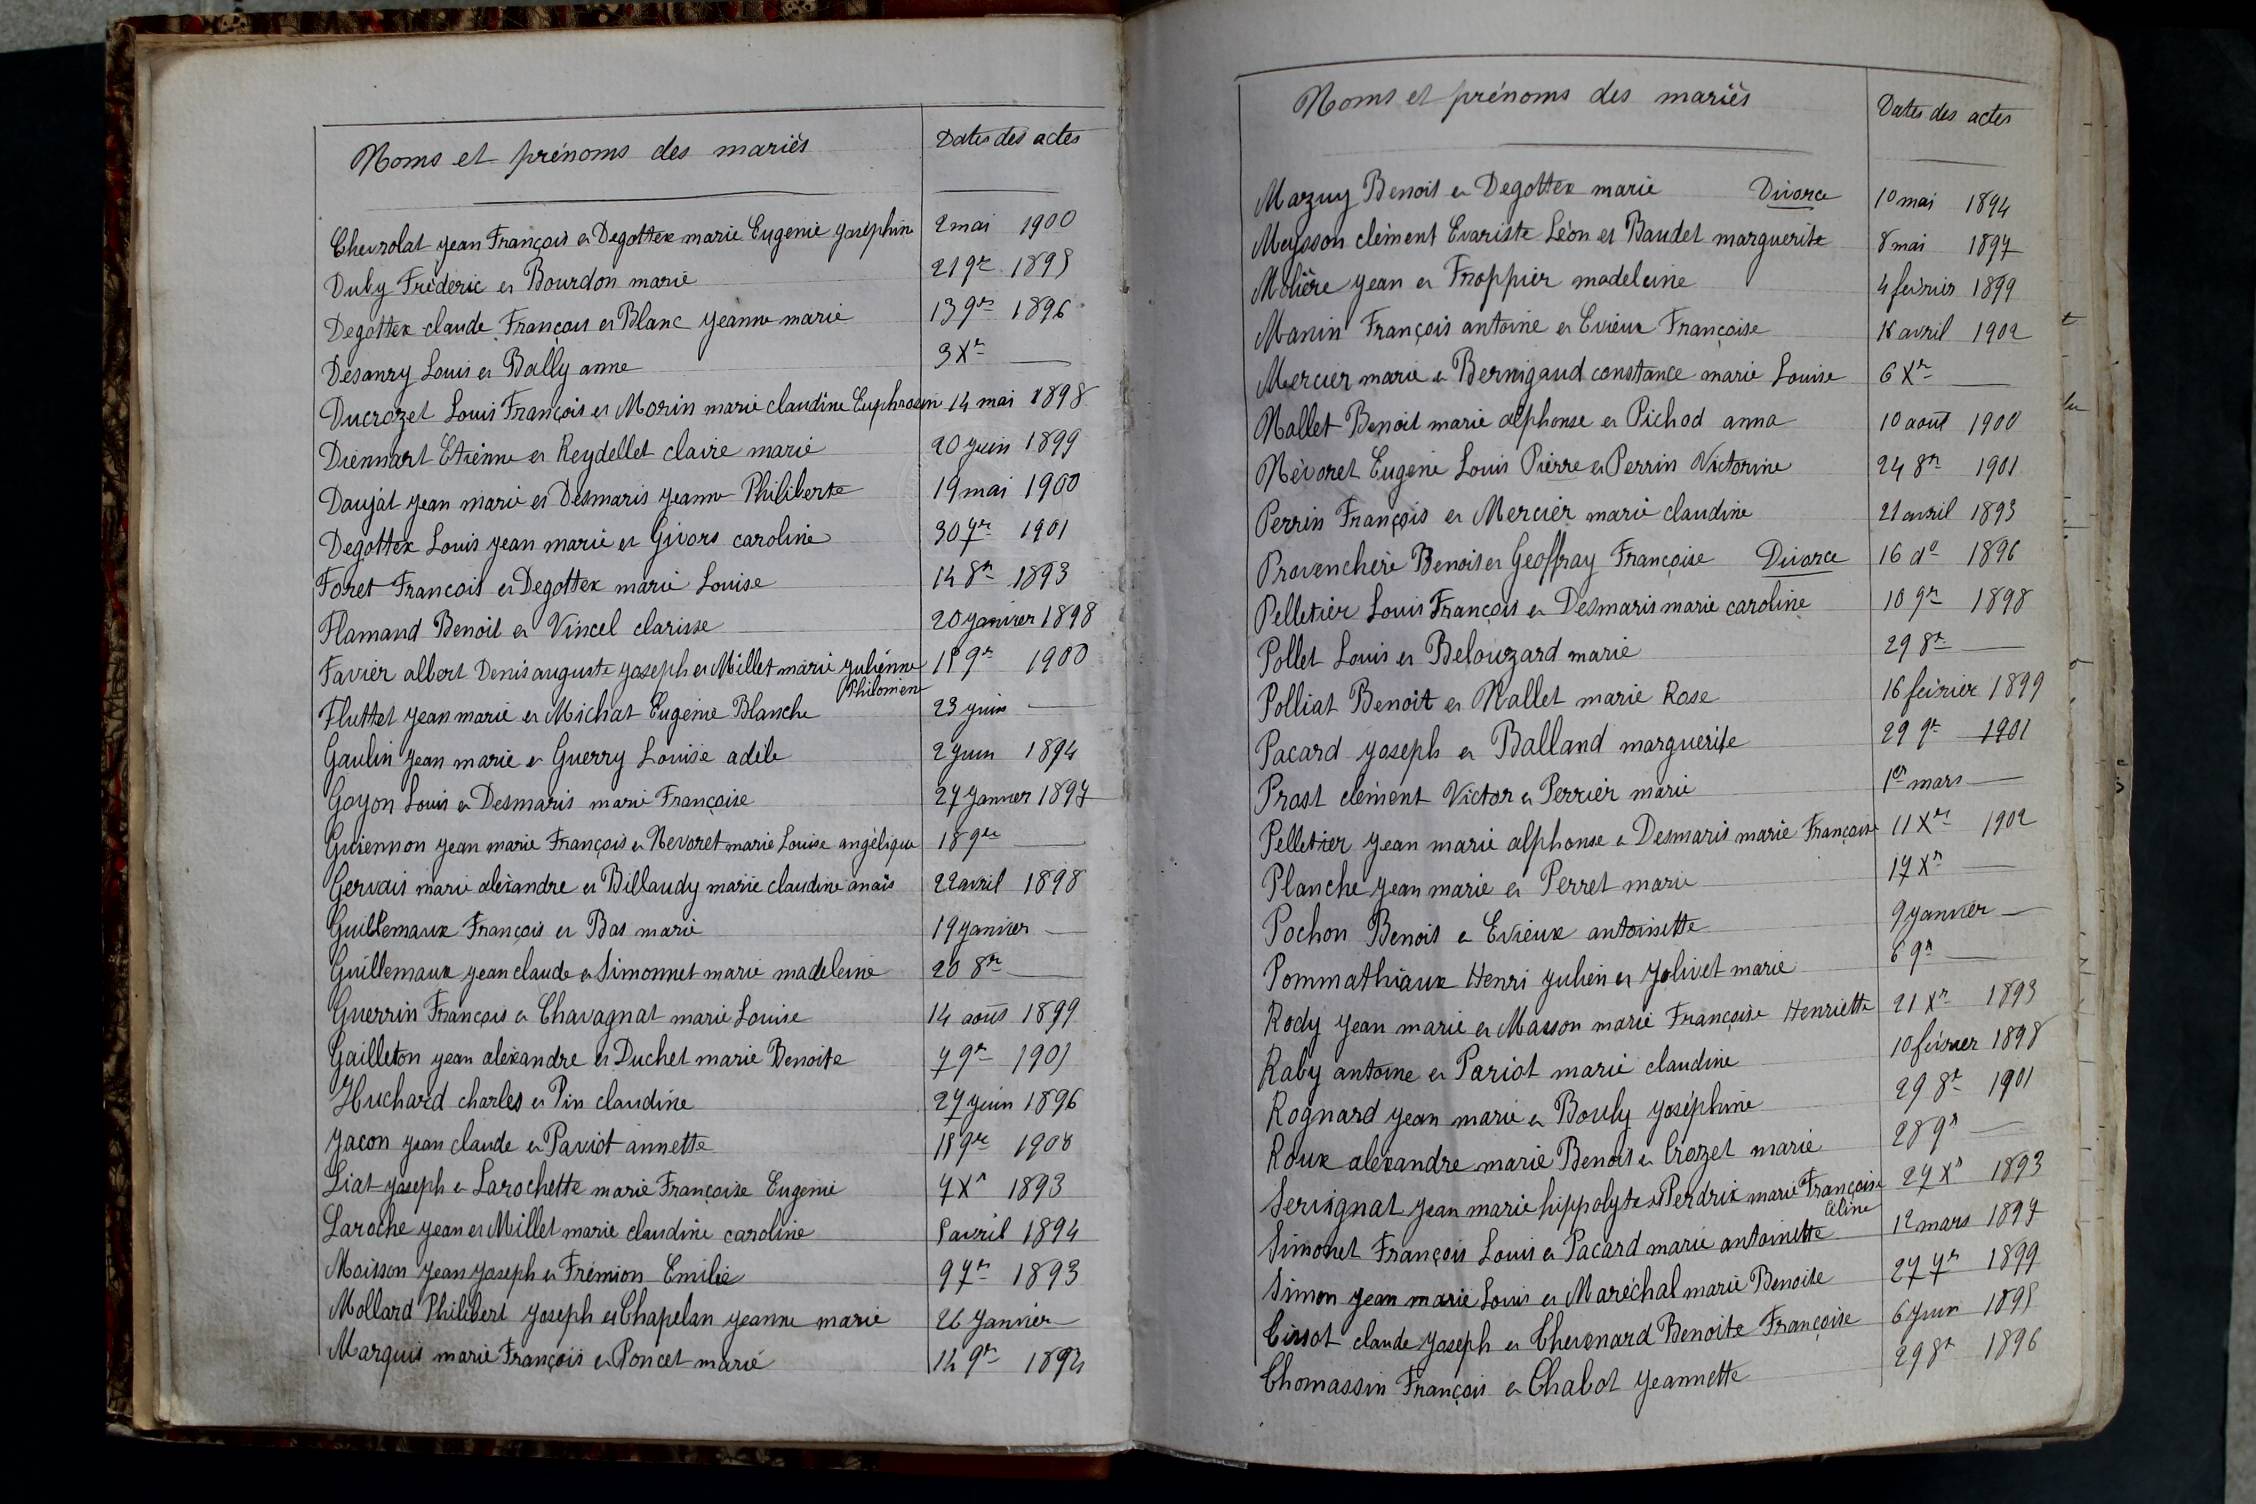 Noms et prénoms des mariés Dates des actes
Chevrolat Jean François et Degottex marie Eugenie Joséphin 2 mai 1900
Duby Frédéric et Bourdon marie 21 9re 1895
Degottex claude François et Blanc Jeanne marie 13 9re 1896
Désanry Louis et Bally anne 3 Xre —
Ducrozet Louis François et Morin marie claudine Euphrosin 14 mai 1898
Diennart Etienne et Reydellet claire marie 20 Juin 1899
Daujat Jean marie et Desmaris Jeanne Philiberte 19 mai 1900
Degottex Louis Jean marie et Givors caroline 30 7re 1901
Foret François et Degottex marie Louise 14 8re 1893
Flamand Benoit et Vincel clarisse 20 Janvier 1898
Favier albert Denis auguste Joseph et Millet marie Julienne 15 9re 1900
Philomene
Fluttet Jean marie et Michat Eugénie Blanche 23 Juin —
Gaulin Jean marie et Guerry Louise adèle 2 Juin 1894
Goyon Louis et Desmaris marie Françoise 27 Janvier 1897
Guiennon Jean marie François et Nevoret marie Louise angélique 18 9re —
Gervais marie alexandre et Billaudy marie claudine anaïs 22 avril 1898
Guillemaux François et Bas marie 19 Janvier —
Guillemaux Jean claude et Simonnet marie madeleine 20 8re —
Guerrin François et Chavagnat marie Louise 14 août 1899
Gailleton Jean alexandre et Duchet marie Benoite 7 9re 1901
Huchard charles et Pin claudine 27 Juin 1896
Jacon Jean claude et Pariot annette 15 9re 1900
Liat Joseph et Larochette marie Françoise Eugenie 7 Xre 1893
Laroche Jean et Millet marie claudine caroline 5 avril 1894
Moisson Jean Joseph et Frémion Emilie 9 7re 1893
Mollard Philibert Joseph et Chapelan Jeanne marie 26 Janvier —
Marquis marie François et Poncet marie 14 9re 1894
Noms et prénoms des mariés Dates des actes
Mazuy Benoit et Degottex marie Divorce 10 mai 1894
Meysson clément Evariste Léon et Baudet marguerite 8 mai 1897
Molière Jean et Froppier madeleine 4 février 1899
Manin François antoine et Evieux Françoise 18 avril 1902
Mercier marie et Bernigaud constance marie Louise 6 Xre —
Nallet Benoit marie alphonse et Pichod anna 10 août 1900
Névoret Eugène Louis Pierre et Perrin Victorine 24 8re 1901
Perrin François et Mercier marie claudine 21 avril 1893
Provenchère Benoit et Geoffray Françoise Divorce 16 do 1896
Pelletier Louis François et Desmaris marie caroline 10 9re 1898
Pollet Louis et Belouzard marie 29 8re —
Polliat Benoit et Nallet marie Rose 16 février 1899
Pacard Joseph et Balland marguerite 29 9re 1901
Prost clément Victor et Perrier marie 1er mars —
Pelletier Jean marie alphonse et Desmaris marie Françoise 11 Xre 1902
Planche Jean marie et Perret marie 17 Xre —
Pochon Benoit et Evieux antoinette 9 Janvier —
Pommathiaux Henri Julien et Jolivet marie 6 9re —
Rody Jean marie et Masson marie Françoise Henriette 21 Xre 1893
Raby antoine et Pariot marie claudine 10 février 1898
Rognard Jean marie et Bouly Joséphine 29 8re 1901
Roux alexandre marie Benoit et Crozet marie 28 9re —
Servignat Jean marie hippolyte et Perdrix marie Françoise 27 Xre 1893
Céline
Simonet François Louis et Pacard marie antoinette 12 mars 1897
Simon Jean marie Louis et Maréchal marie Benoite 27 7re 1899
Tissot claude Joseph et Thevenard Benoite Françoise 6 Juin 1895
Thomassin François et Chabot Jeannette 29 8re 1896